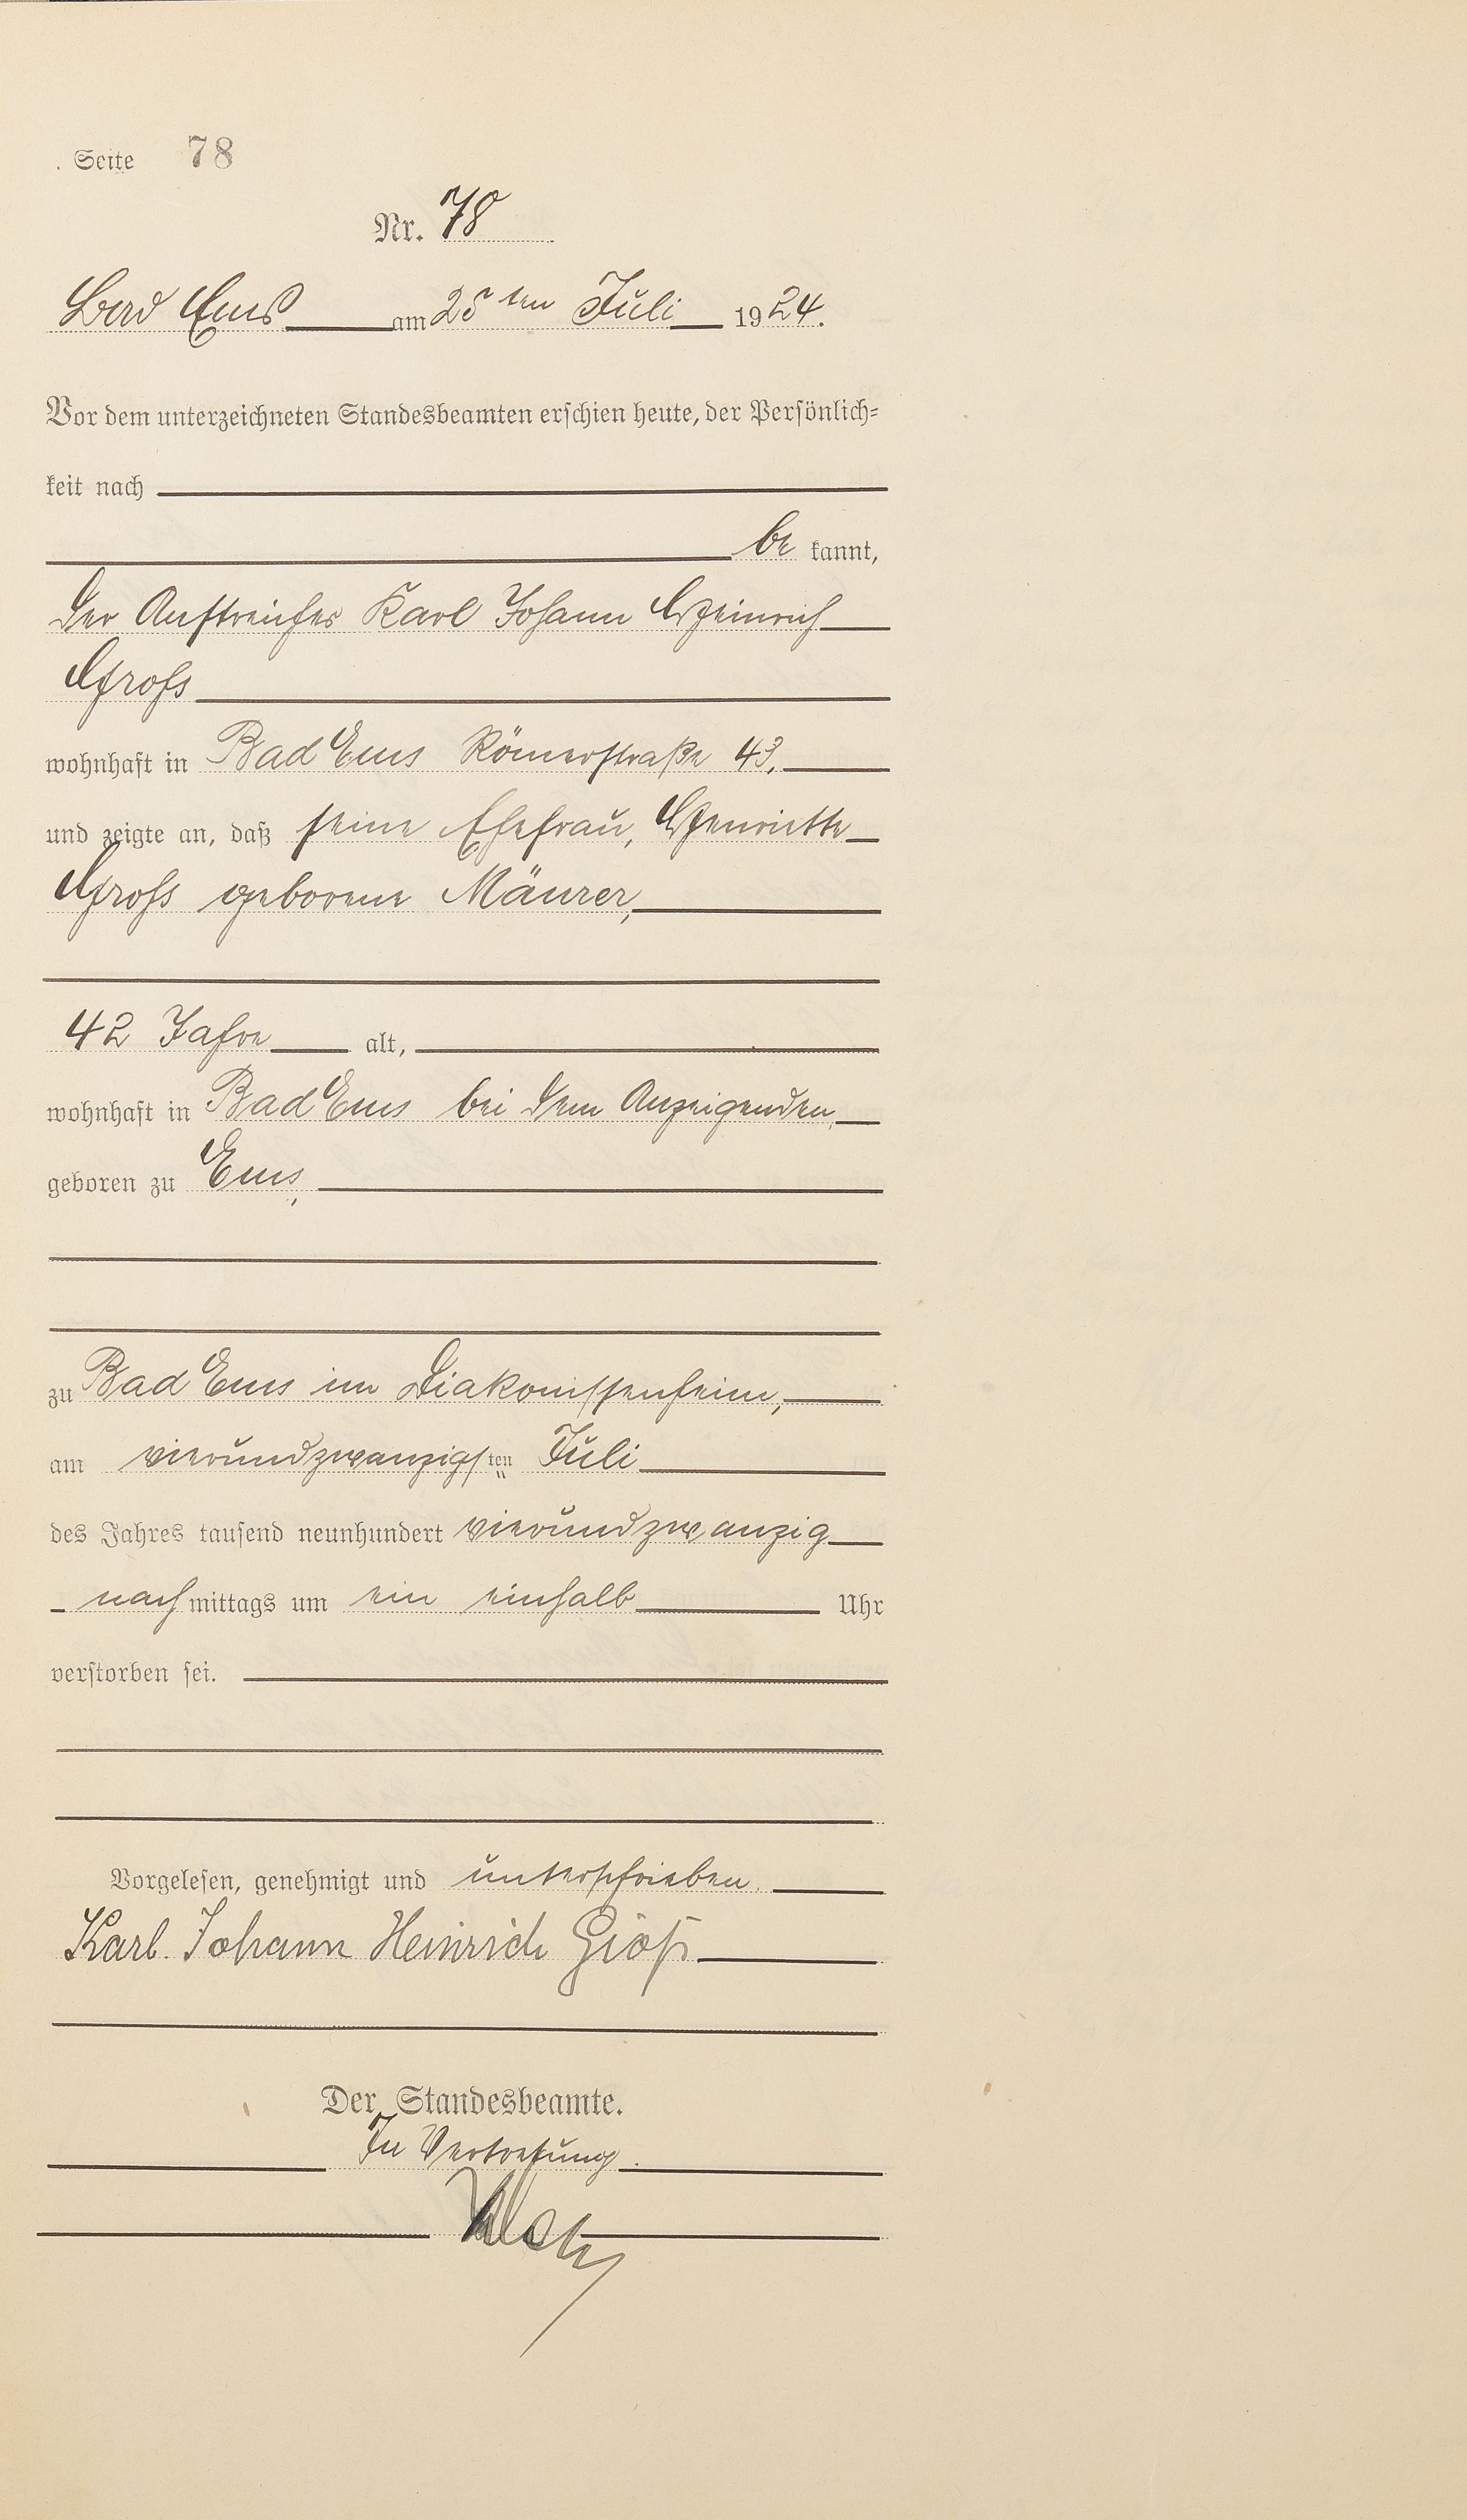 Seite 78
Nr. 78
Bad Ems am 25ten Juli 1924.
Vor dem unterzeichneten Standesbeamten erschien heute, der Persönlich-
keit nach
be kannt,
der Anstreicher Karl Johann Heinrich
Gross
wohnhaft in Bad Ems Römerstraße 43,
und zeigte an, daß seine Ehefrau, Henriette
Gross geborene Mäurer,
42 Jahre alt,
wohnhaft in Bad Ems bei dem Anzeigenden,
geboren zu Ems,
zu Bad Ems im Diakonissenheim,
am vierundzwanzigsten Juli
des Jahres tausend neunhundert vierundzwanzig
nach mittags um ein einhalb Uhr
verstorben sei.
Vorgelesen, genehmigt und unterschrieben.
Karl Johann Heinrich Groß
Der Standesbeamte.
In Vertretung.